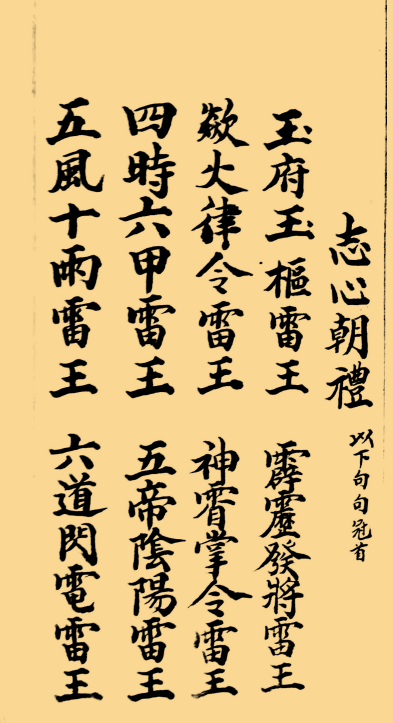 志心朝禮 以下句句冠首
玉府玉樞雷王 霹靂發將雷王
欻火律令雷王 神霄掌令雷王
四時六甲雷王 五帝陰陽雷王
五風十雨雷王 六道閃電雷王